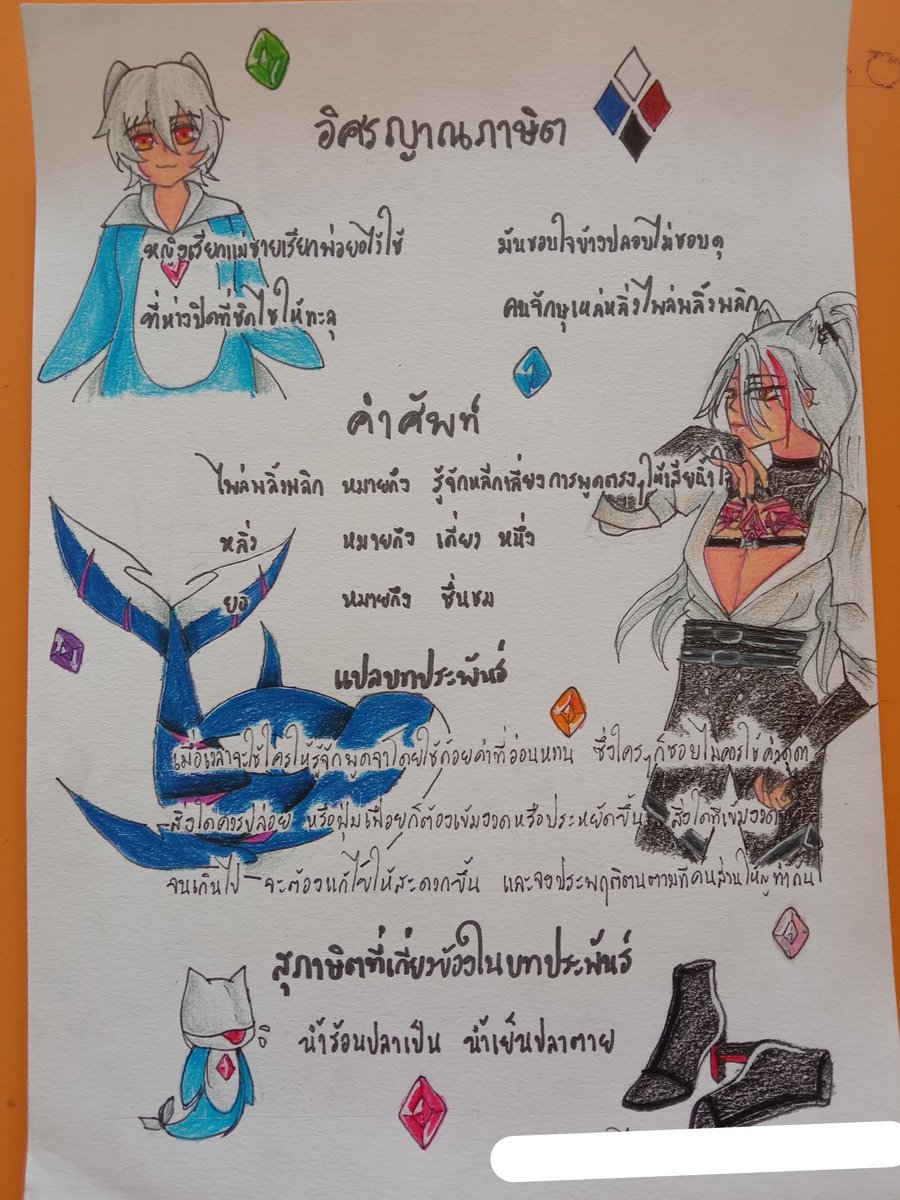 อิศรญาณภาษิต
หญิงเรียกแม่ชายเรียกพ่อยอไว้ใช้ มันชอบใจข้างปลอบไม่ชอบดุ
ที่ห่างปิดที่ชิดไชให้ทะลุ คนจักษุเหล่หลิ่งไพล่พลิ้งพลิก
คำศัพท์
ไพล่พลิ้งพลิก หมายถึง รู้จักหลีกเลี่ยงการพูดตรงๆให้เสียน้ำใจ
หลิ่ง หมายถึง เกี่ยง หนึ่ง
ยอ หมายถึง ชื่นชม
แปลบทประพันธ์
เมื่อเวลาจะใช้ใครให้รู้จักพูดจาโดยใช้ถ้อยคำที่อ่อนหวาน ซึ่งใครๆก็ชอบไม่ควรใช้คำดุด่า
สิ่งใดควรปล่อย หรือฟุ่มเฟือยก็ต้องเข้มงวดหรือประหยัดขึ้น สิ่งใดที่เข้มงวด
จนเกินไป จะต้องแก้ไขให้สะดวกขึ้น และจงประพฤติตนตามที่คนส่วนใหญ่ทำกัน
สุภาษิตที่เกี่ยวข้องในบทประพันธ์
น้ำร้อนปลาเป็น น้ำเย็นปลาตาย